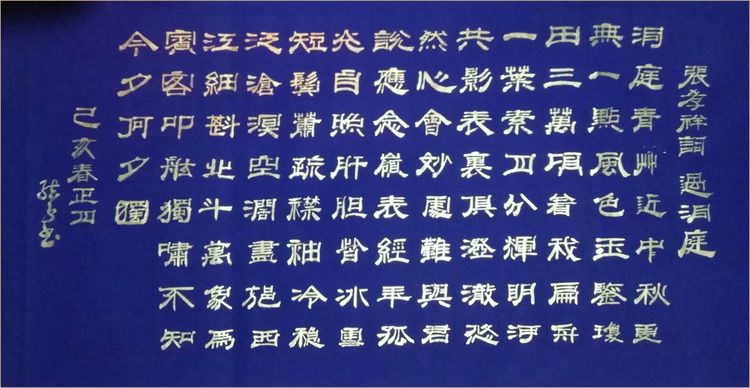 張孝祥詞過洞庭
洞庭青艸近中秋更
無一點風色玉鑒瓊
田三萬頃着我扁舟
一葉素月分輝明河
共影表裏俱澄澈悠
然心會妙處難與君
說應念嶺表經年孤
光自照肝胆皆冰雪
短鬢蕭疏襟袖冷穩
泛滄溟空濶盡挹西
江細斟北斗萬象為
賓客叩舷獨嘯不知
今夕何夕獨
己亥春正月
書